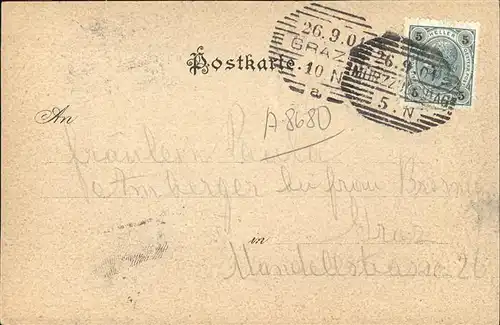 26.9.01
GRAZ
10.N
a
26.9.01
MÜRZZUSCHLAG
5.N
5 HELLER 5
Postkarte
An
A-8680
Fräulein Paula
Amberger bei Frau
in Graz
Mandellstrasse 26